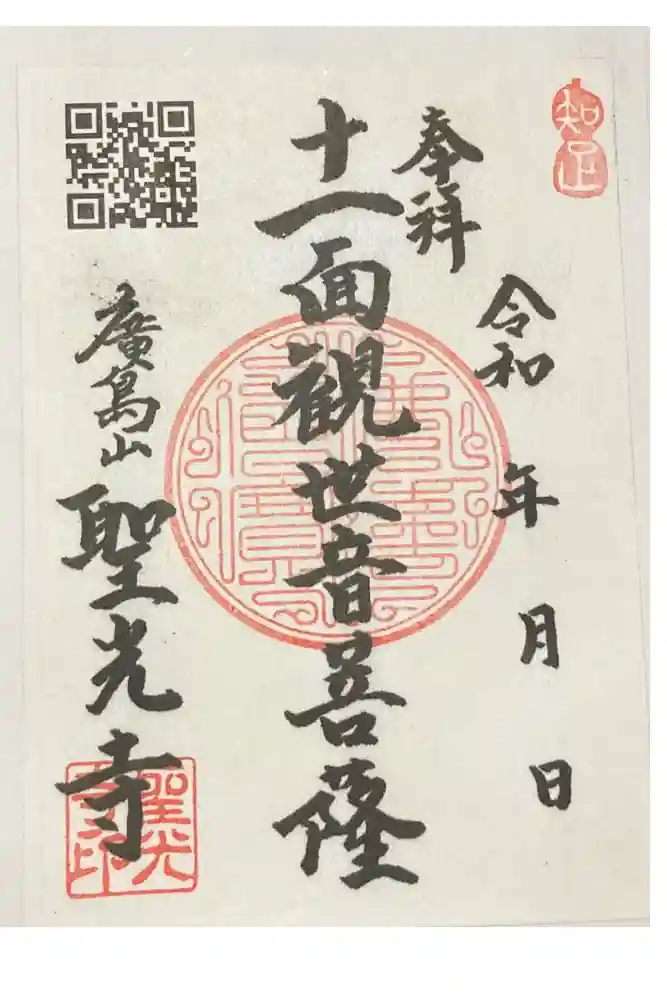 知足
令和 年 月 日
奉拝
十一面観世音菩薩
廣島山
聖光寺
聖光寺印